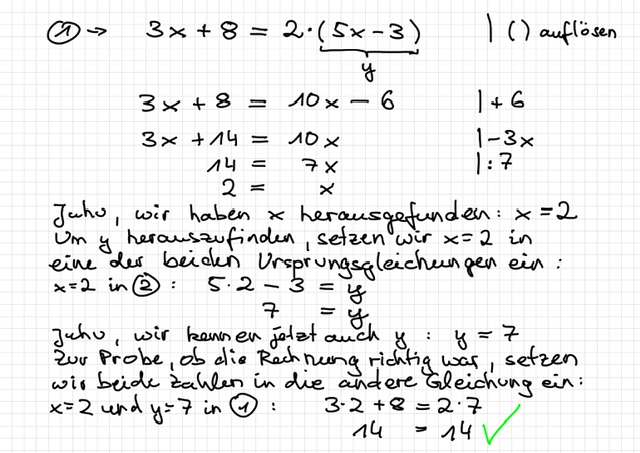 ① → 3x + 8 = 2·(5x − 3) | () auflösen
y
3x + 8 = 10x − 6 | + 6
3x + 14 = 10x | −3x
14 = 7x | : 7
2 = x
Juhu, wir haben x herausgefunden: x = 2
Um y herauszufinden, setzen wir x = 2 in
eine der beiden Ursprungsgleichungen ein:
x = 2 in ②: 5·2 − 3 = y
7 = y
Juhu, wir kennen jetzt auch y : y = 7
Zur Probe, ob die Rechnung richtig war, setzen
wir beide Zahlen in die andere Gleichung ein:
x = 2 und y = 7 in ①: 3·2 + 8 = 2·7
14 = 14 ✓